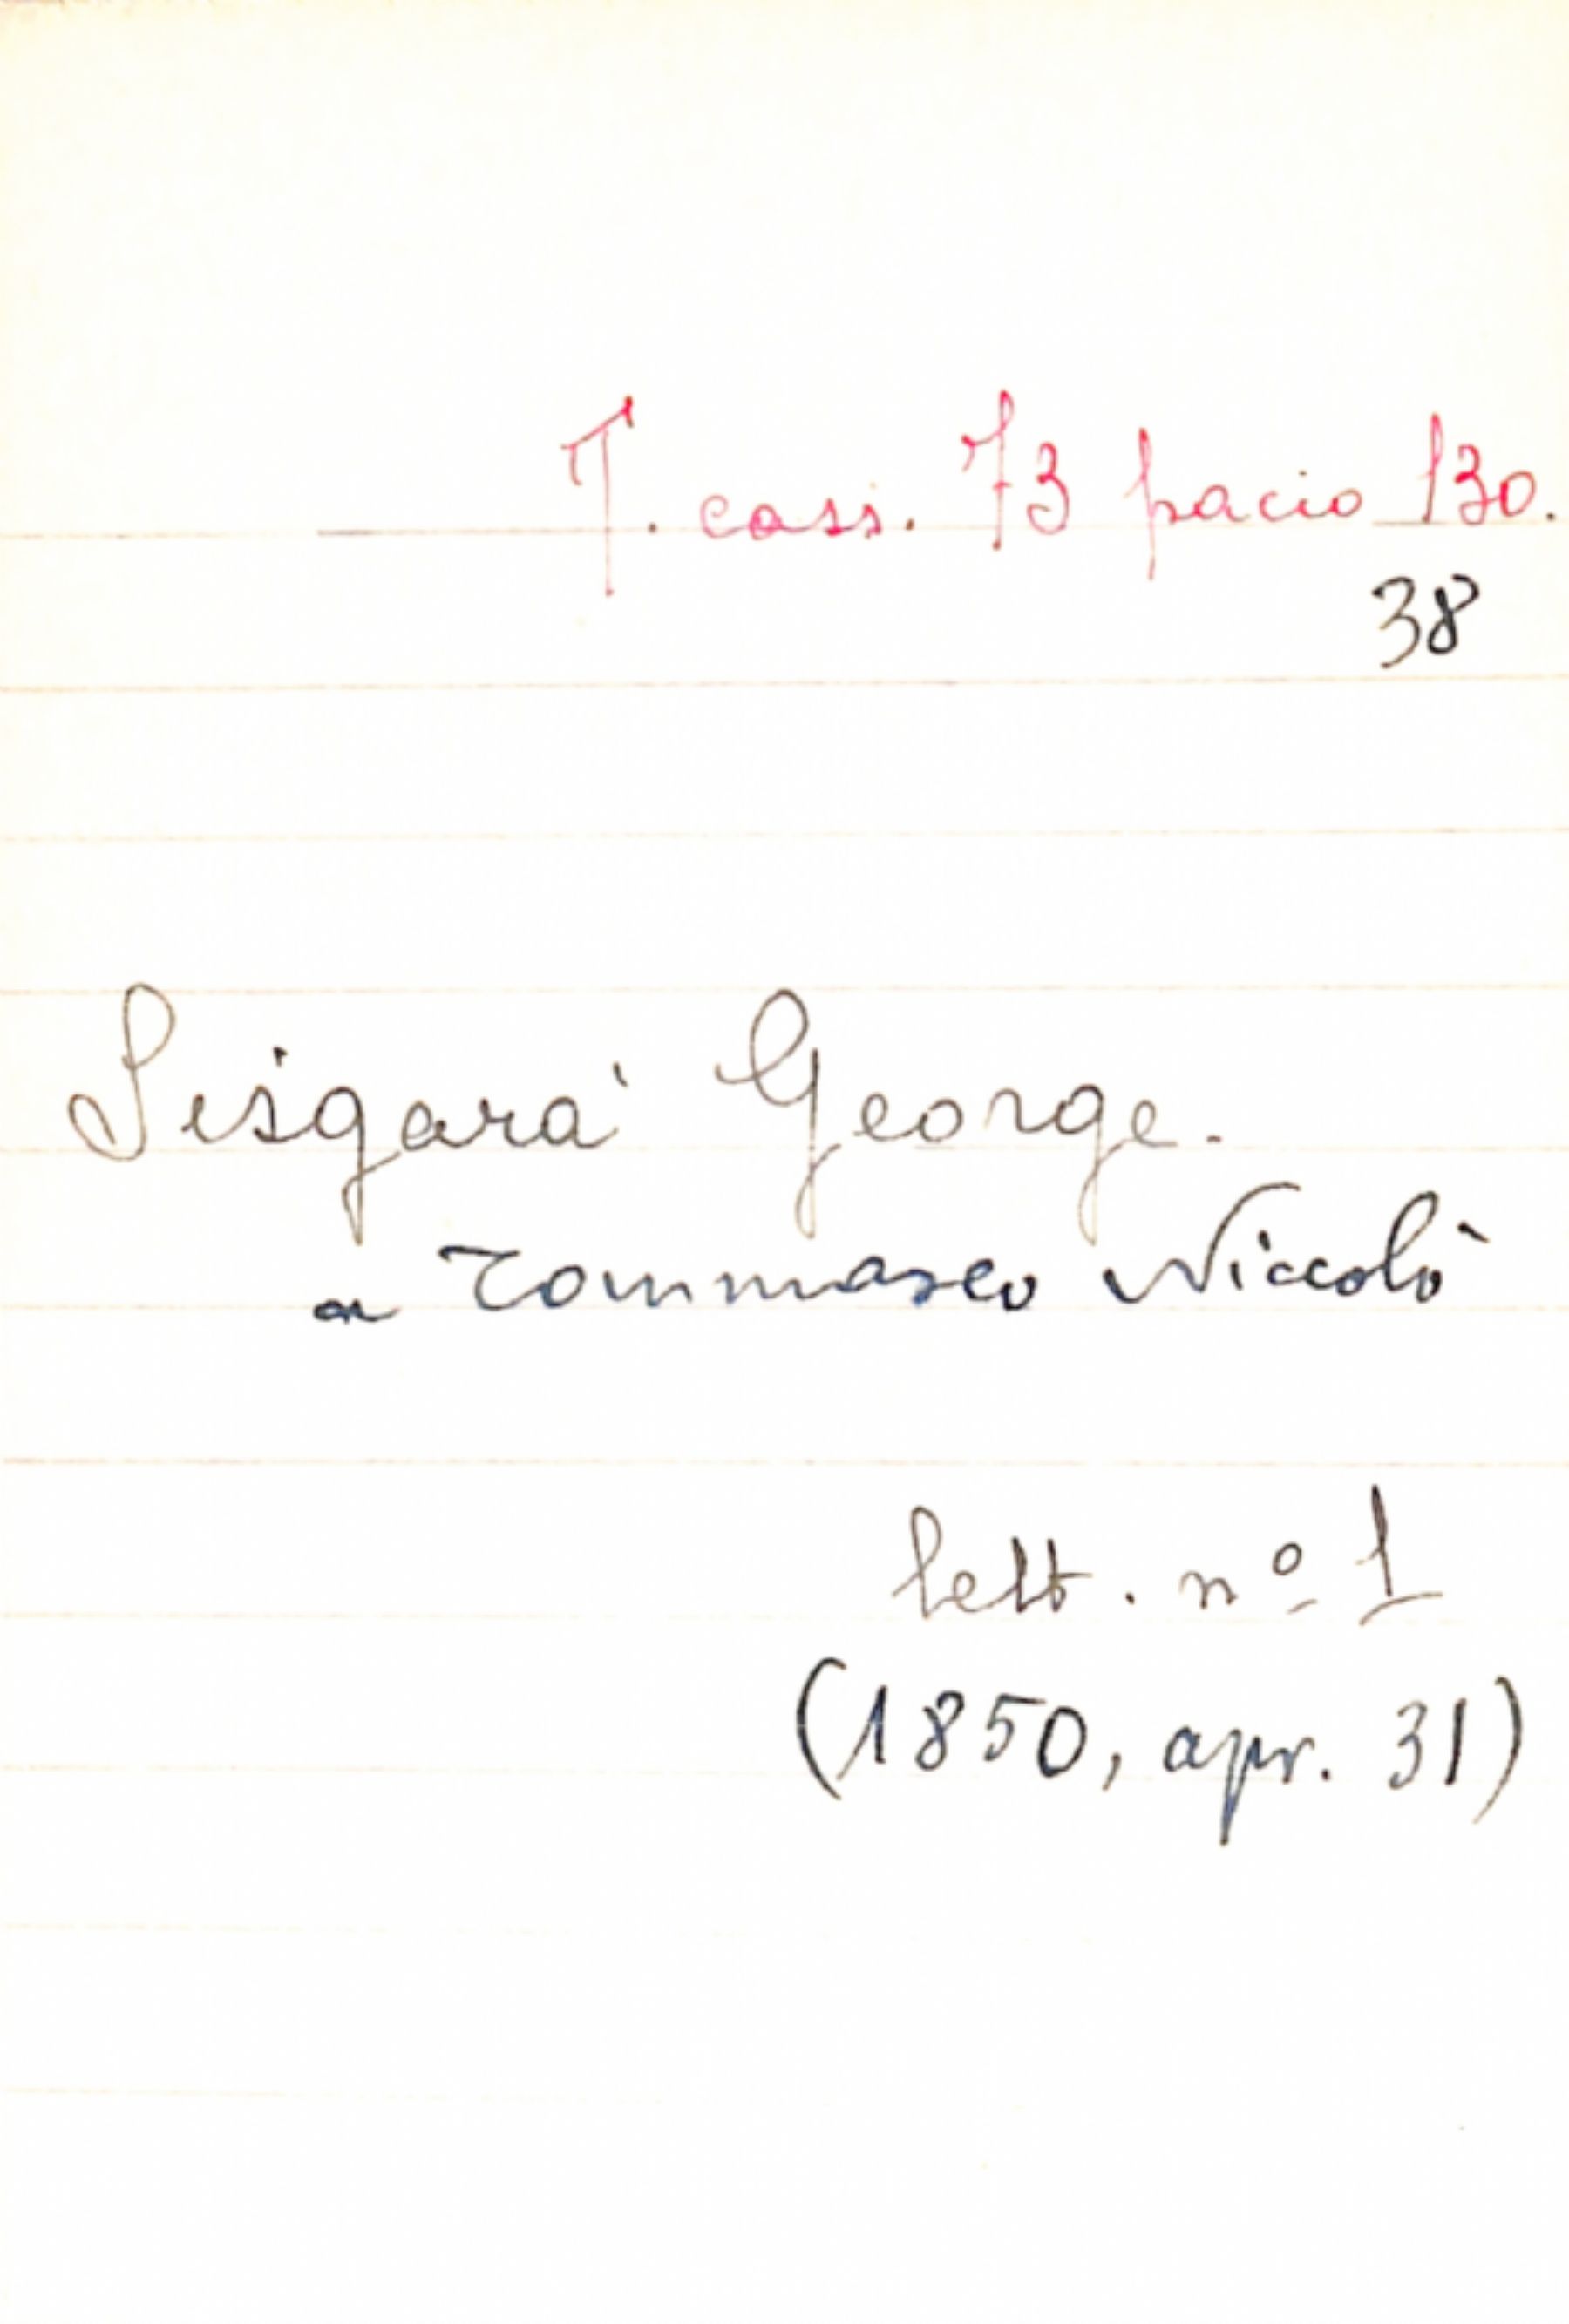 T. cass. 73 pacio 130.
38
Sisgara' George.
a Tommaseo Niccolò
lett. nº 1
(1850, apr. 31)